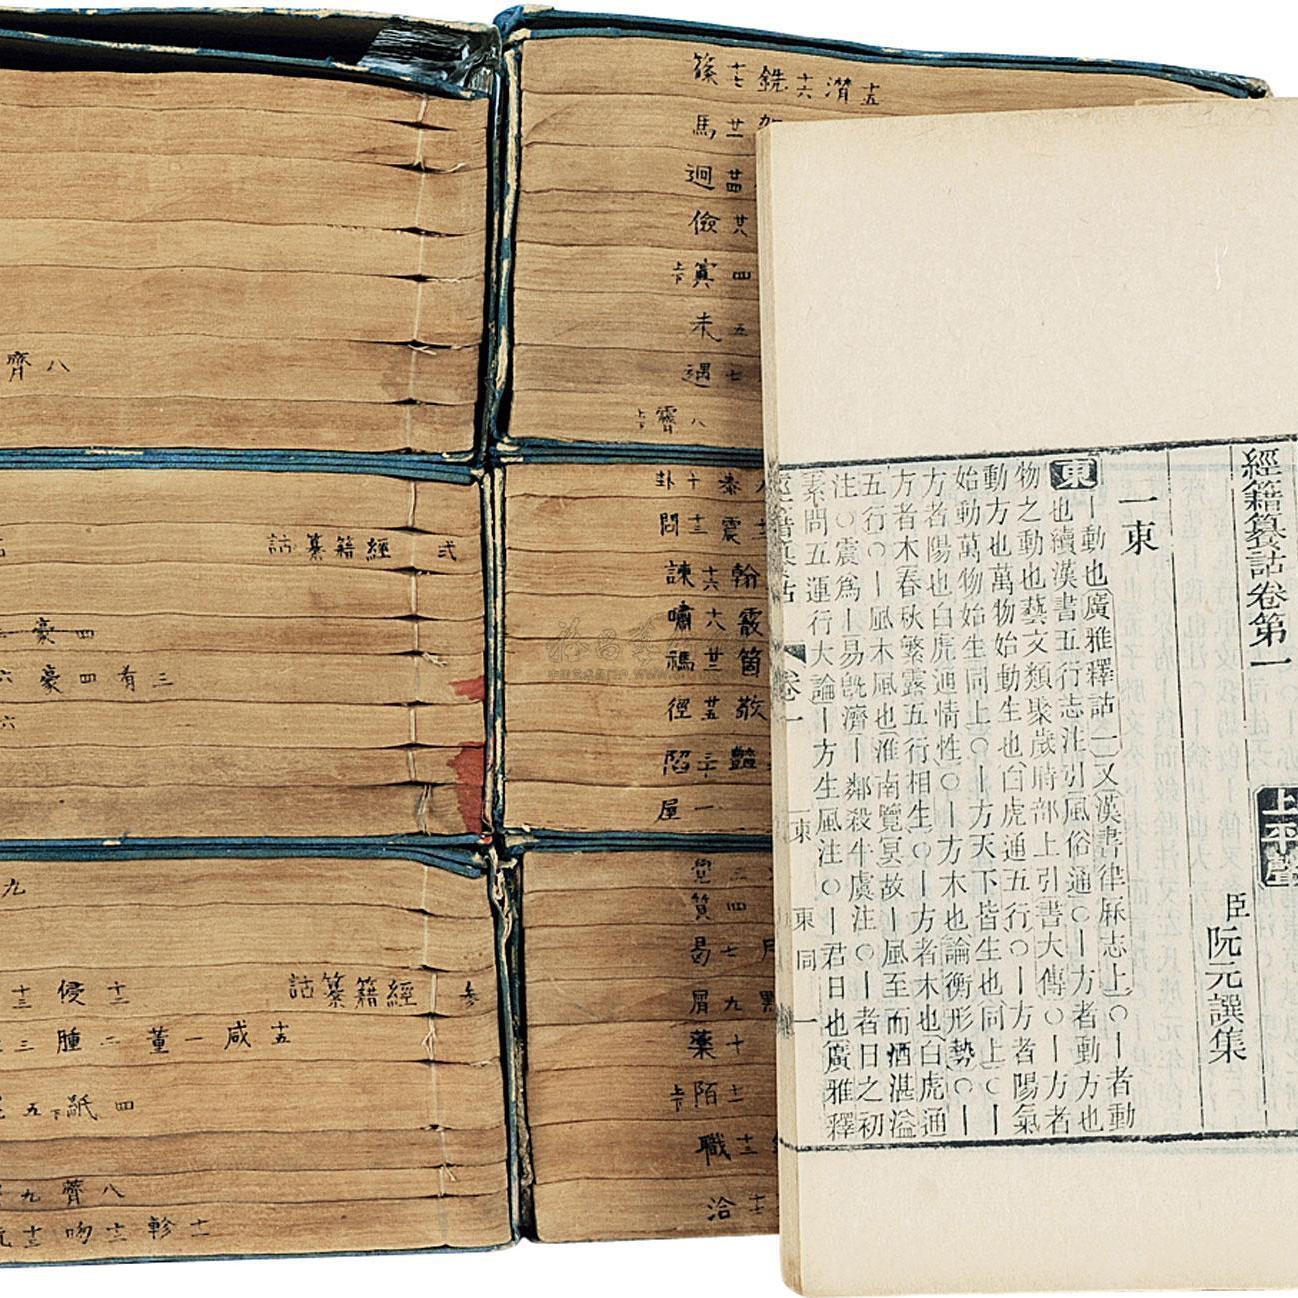 經籍籑詁卷第一
上平聲
臣阮元譔集
一東
東
丨動也廣雅釋詁一又漢書律厤志上〇丨者動
也續漢書五行志注引風俗通〇丨方者動方也
物之動也藝文類聚歲時部上引書大傳〇丨方者
動方也萬物始動生也白虎通五行〇丨方者陽氣
始動萬物始生同上〇丨方天下皆生也同上〇丨
方者陽也白虎通情性〇丨方木也論衡形勢〇丨
方者木春秋繁露五行相生〇丨方者木也白虎通
五行〇丨風木風也淮南覽冥故丨風至而酒湛溢
注〇震爲丨易旣濟丨鄰殺牛虞注〇丨者日之初
素問五運行大論丨方生風注〇丨君日也廣雅釋
卷一
一東
東同
一
篠十七銑十六潸十五
馬廿一
迥廿四
儉廿八
上下寘四
未五
遇七
上下霽八
卦十泰
問十三震
諫十六翰
嘯十八
禡廿二箇
徑廿五敬
陷三十豔
屋一
覺三
質四
曷七
屑九
藥十
上下陌十一
職十三
洽十七
齊八
弍經籍籑詁
豪四
豪四有三
六
九
叁經籍籑詁
侵十二
腫二董一咸十五
五下紙四
九薺八
阮十三吻十二軫十一